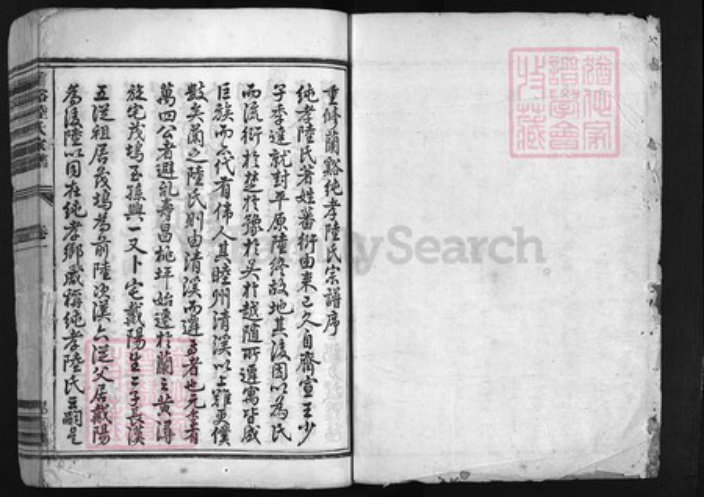 重修蘭谿純孝陸氏宗譜序
純孝陸氏著姓蕃衍由來已久自齊宣王少
子季逵就封平原陸終故地其後因以為氏
而流衍於楚於豫於吳於越隨所遷寓皆成
巨族而代有偉人其睦州清溪以上難更僕
數矣蘭之陸氏則由清溪而遷者也元季有
萬四公者避亂壽昌桃坪始遷於蘭之黃潯
旋宅茂塢五孫興一又卜宅戴陽生二子其漢
五從祖居茂塢為前陸次漢六從父居戴陽
為後陸以因在純孝鄉咸稱純孝陸氏云嗣是
卷一
FamilySearch